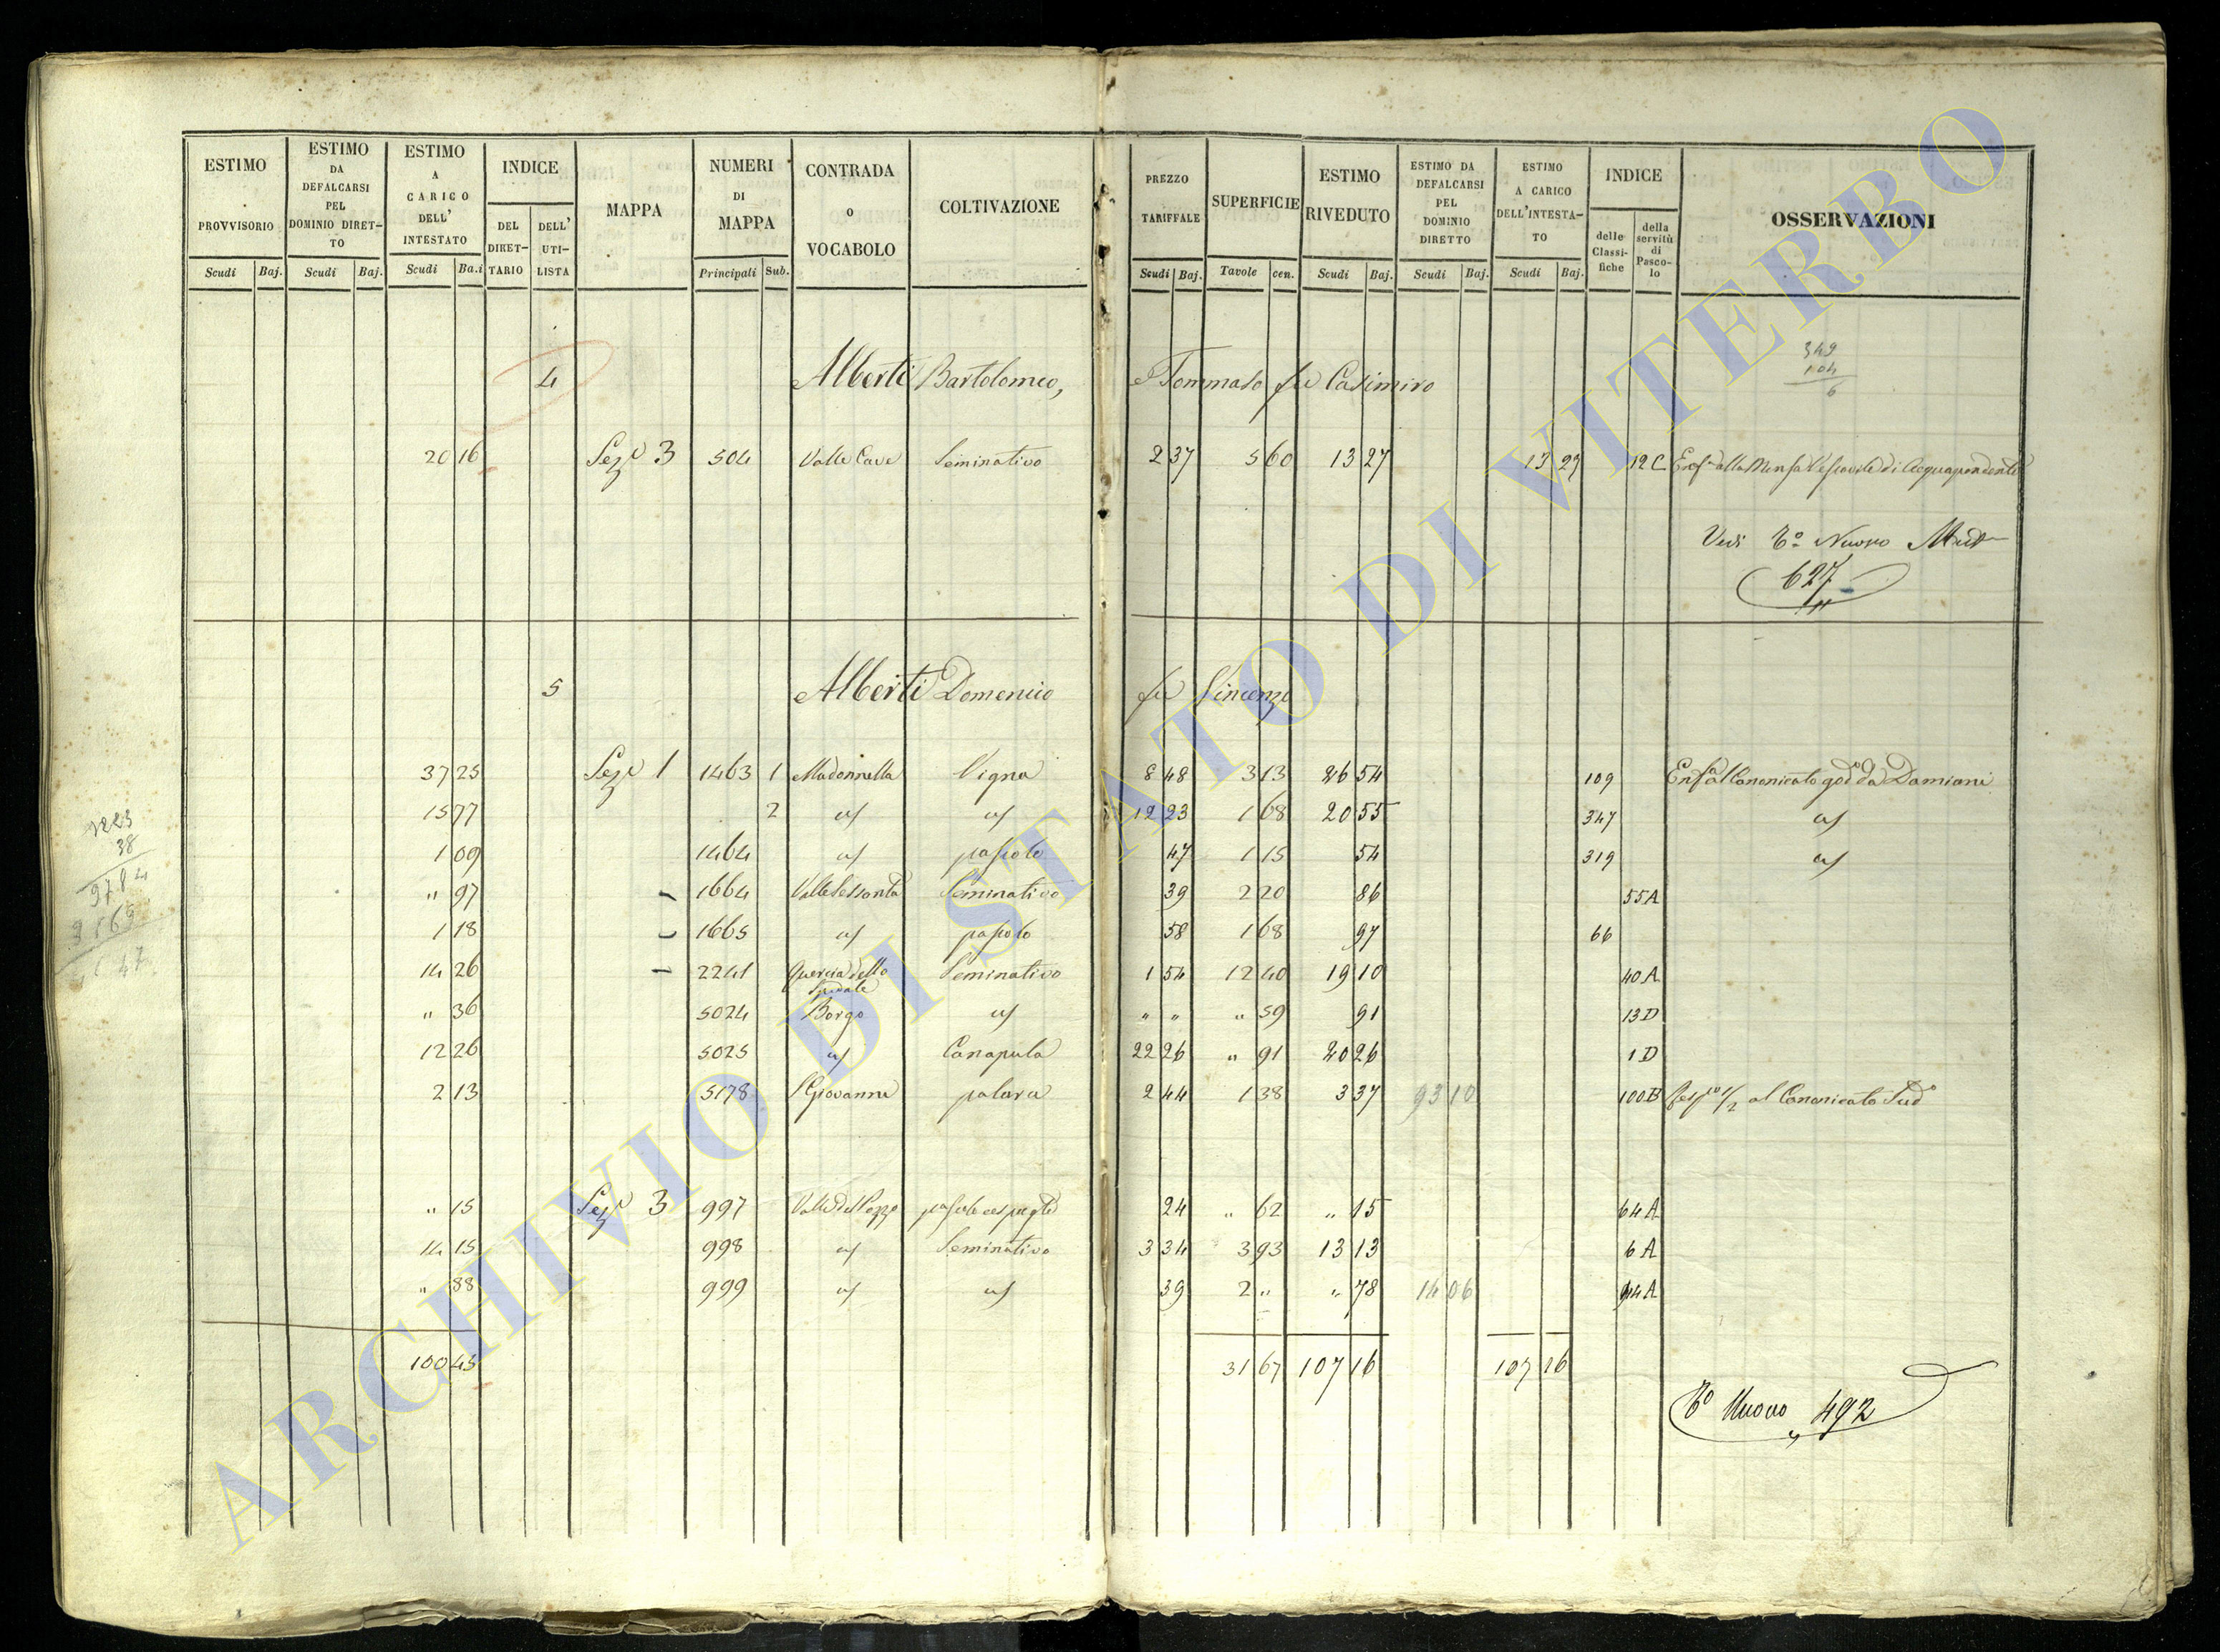 ESTIMO PROVVISORIO Scudi Baj.
ESTIMO DA DEFALCARSI PEL DOMINIO DIRET-TO Scudi Baj.
ESTIMO A CARICO DELL' INTESTATO Scudi Ba.i
INDICE DEL DIRET-TARIO DELL' UTI-LISTA
MAPPA
NUMERI DI MAPPA Principali Sub.
CONTRADA O VOCABOLO
COLTIVAZIONE
PREZZO TARIFFALE Scudi Baj.
SUPERFICIE Tavole cen.
ESTIMO RIVEDUTO Scudi Baj.
ESTIMO DA DEFALCARSI PEL DOMINIO DIRETTO Scudi Baj.
ESTIMO A CARICO DELL'INTESTA-TO Scudi Baj.
INDICE delle Classi-fiche della servitù di Pasco-lo
OSSERVAZIONI
349
104
6
4 Alberti Bartolomeo, e Tommaso fu Casimiro
20 16 Sez.e 3 504 Valle Cave Seminativo 2 37 5 60 13 27 13 27 12 C alla Mensa Vescovile di Acquapendente
Vedi To Nuovo
627
5 Alberti Domenico fu Vincenzo
37 25 Sez.e 1 1463 1 Madonnella Vigna 8 48 3 13 26 54 109 Canonicato god. da Damiani
15 77 2 as as 12 23 1 68 20 55 347 as
1 09 1464 as pascolo 47 1 15 54 319 as
" 97 1664 Seminativo 39 2 20 86 55 A
1 18 1665 as pascolo 58 1 68 97 66
14 26 2241 Quercia dello Spedale Seminativo 1 54 12 40 19 10 40 A
" 36 5024 Borgo as " " " 59 91 13 D
12 26 5025 as Canapula 22 26 " 91 20 26 1 D
2 13 5178 S Giovanni 2 44 1 38 3 37 93 10 100 B 1/2 al Canonicato Sudo
" 15 Sez.e 3 997 Valle del Pozzo pascolo cespugto 24 " 62 " 15 64 A
14 15 998 as Seminativo 3 34 3 93 13 13 6 A
" 88 999 as as 39 2 " " 78 14 06 94 A
100 45 31 67 107 16 107 16
To Nuovo 492
1223
38
9784
ARCHIVIO DI STATO DI VITERBO